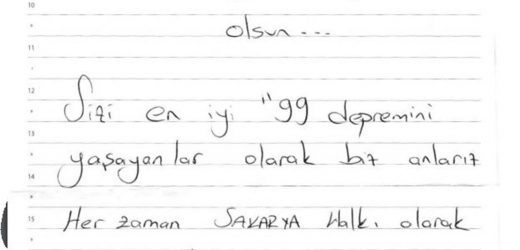 olsun ...
Sizi en iyi "99 depremini
yaşayanlar olarak biz anlarız
Her zaman SAKARYA Halkı olarak